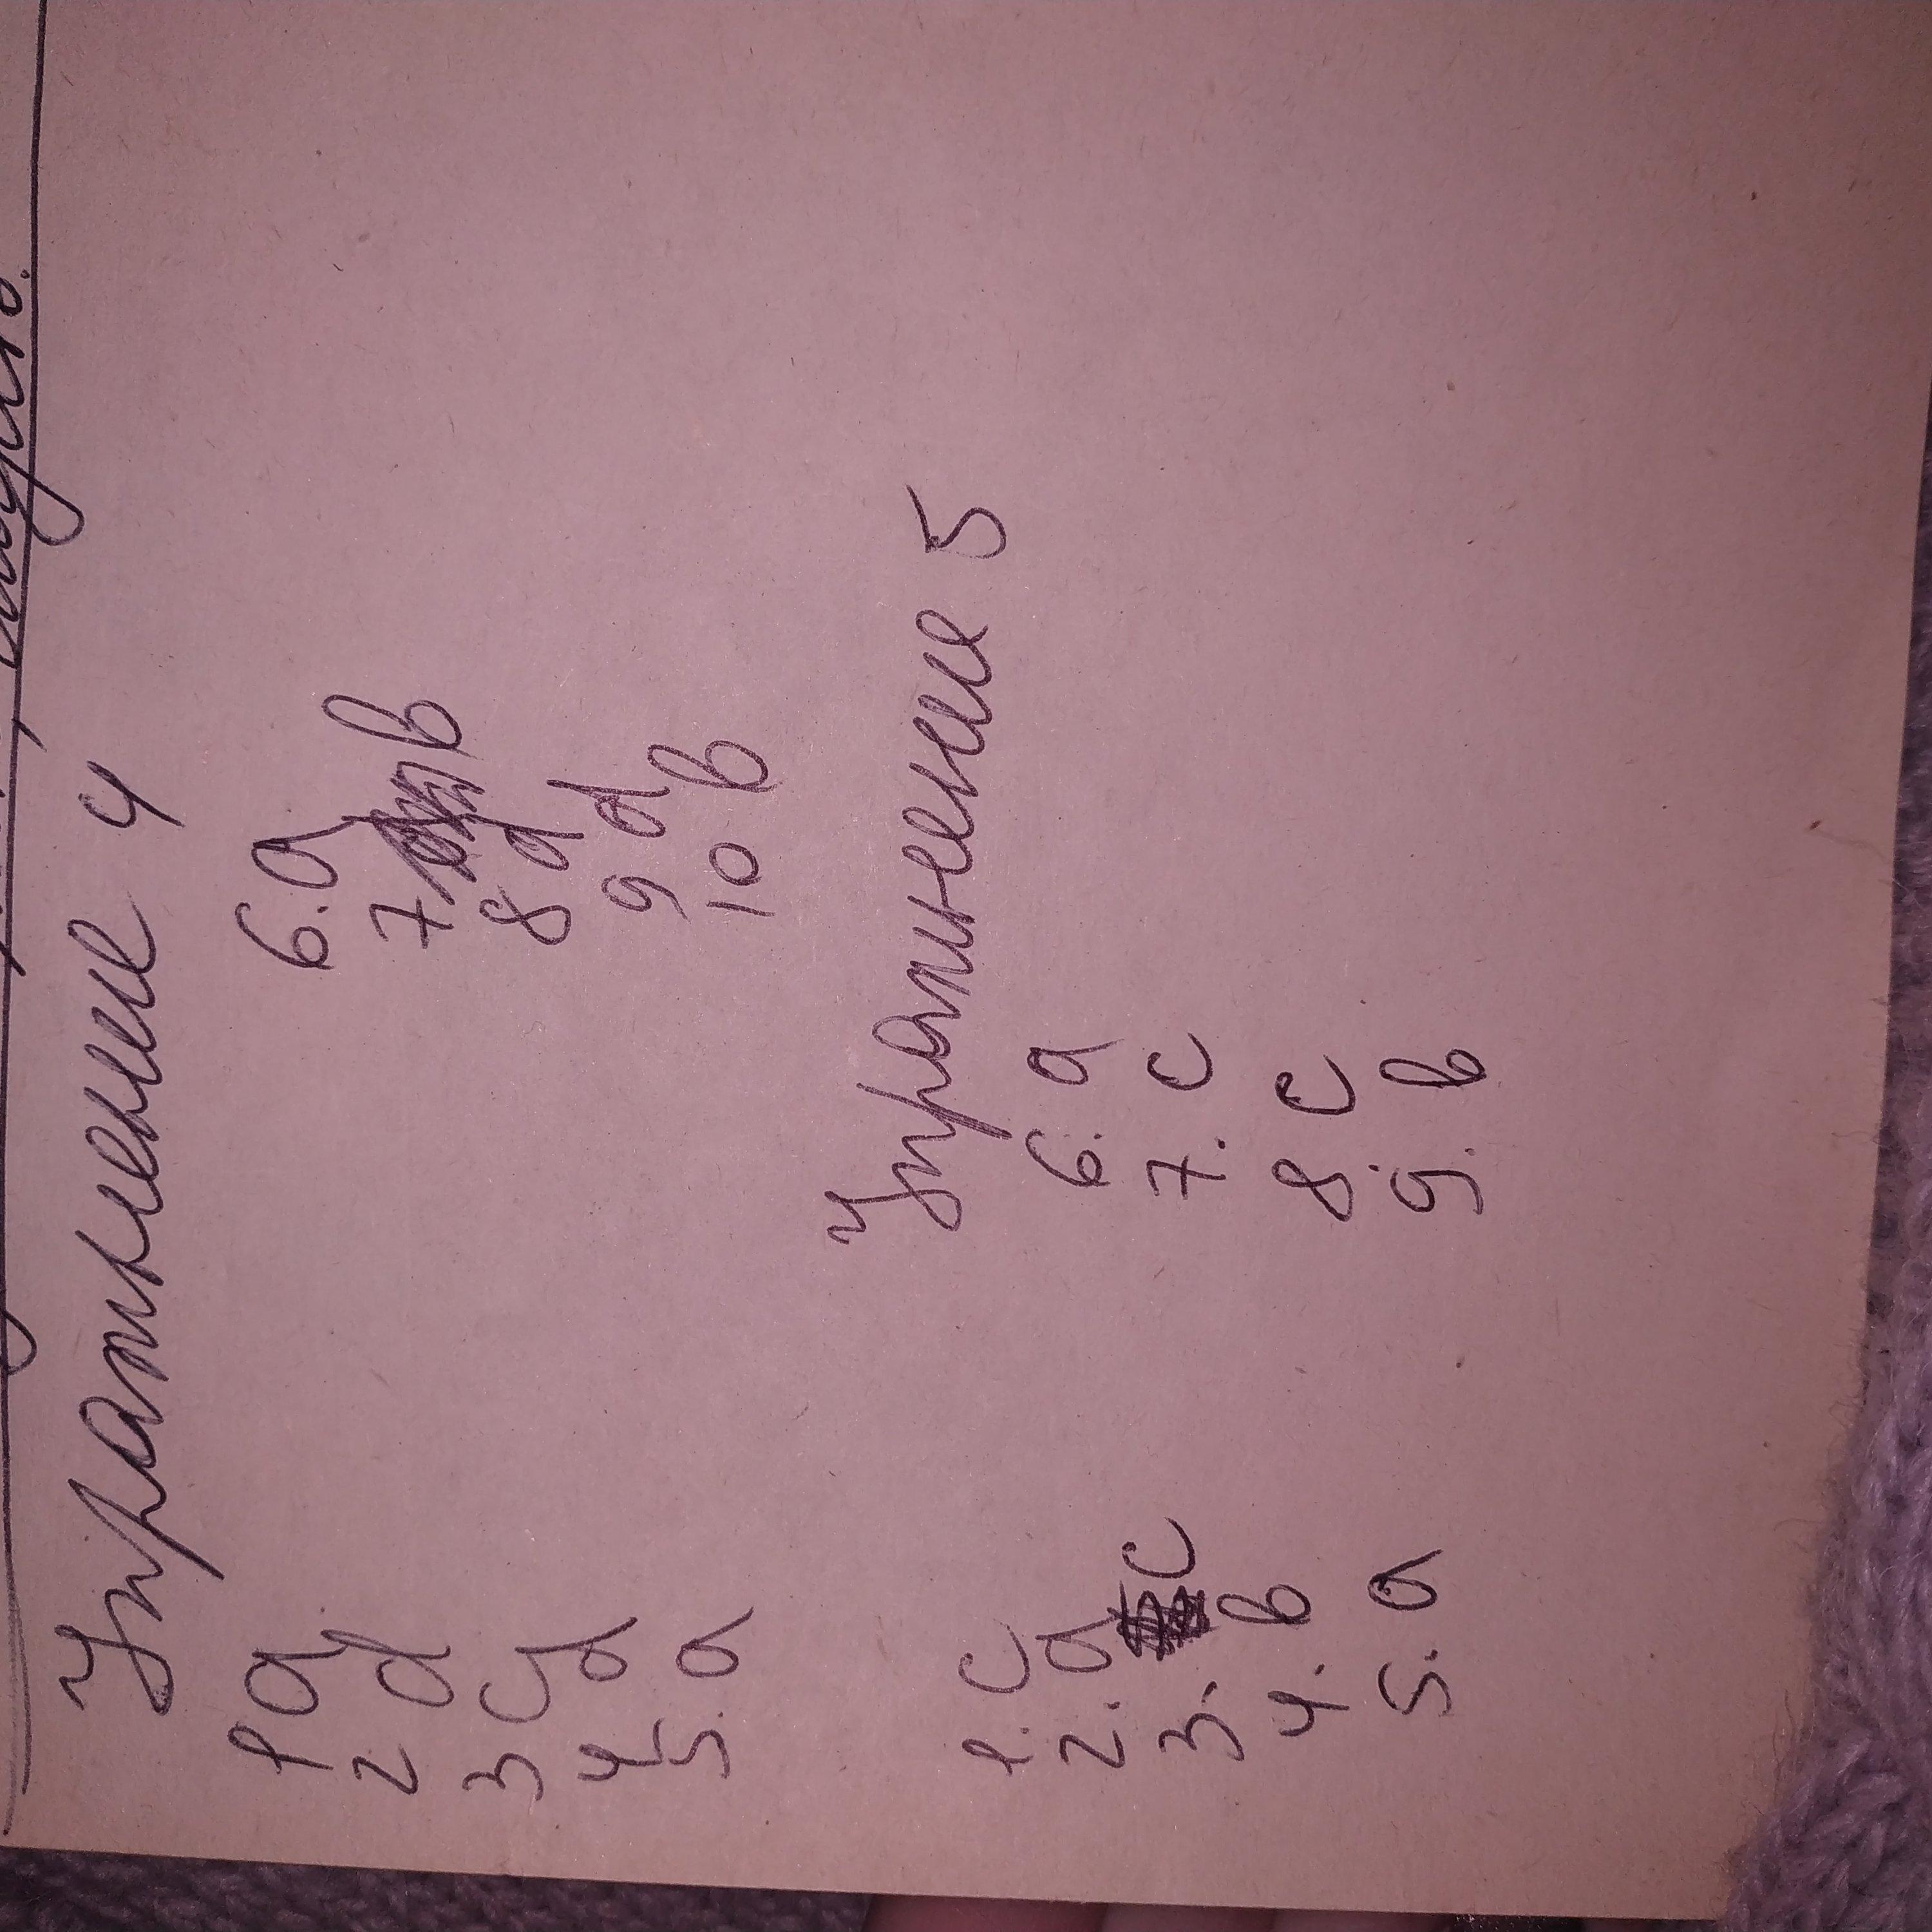 Упражнение 4
1 a 6. a
2 d 7 b
3 c 8 d
4 d 9 d
5. a 10 b
Упражнение 5
1. c 6. a
2. a 7. c
3. c 8. c
4. b 9. b
5. a